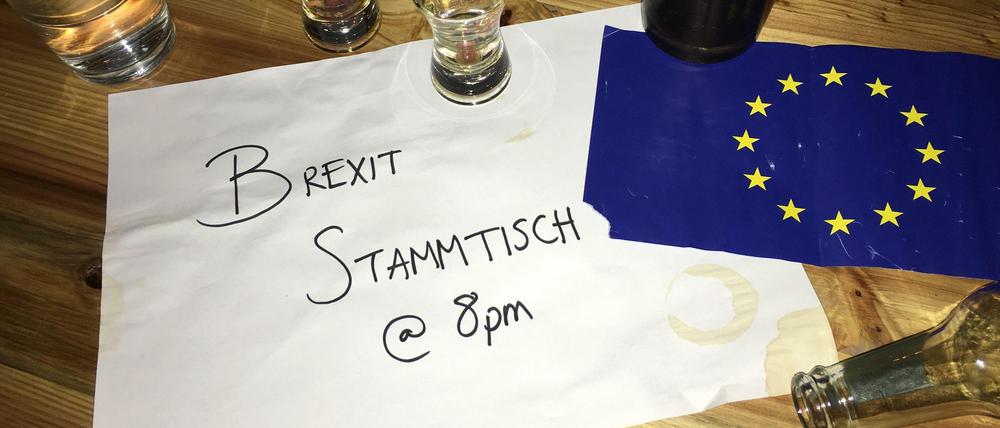 BREXIT
STAMMTISCH
@ 8pm